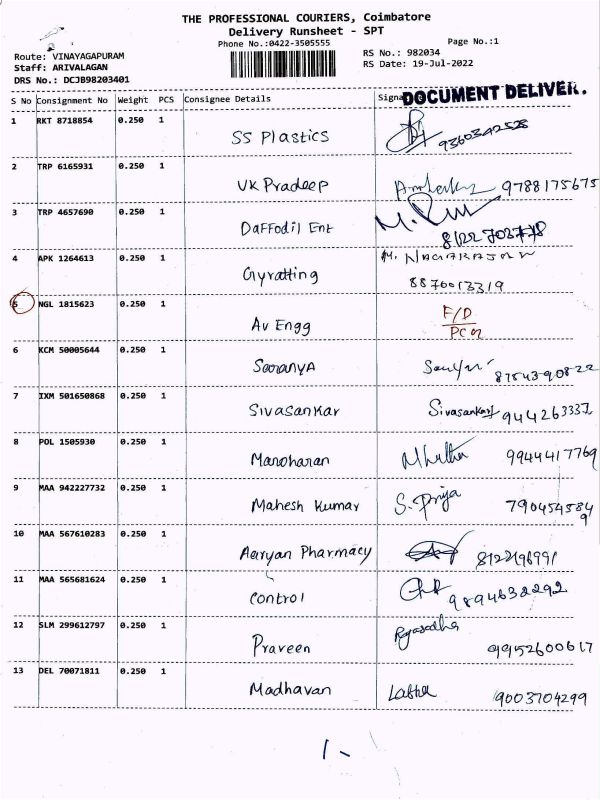 THE PROFESSIONAL COURIERS, Coimbatore
Delivery Runsheet - SPT
Phone No.:0422-3505555 Page No.:1
Route: VINAYAGAPURAM RS No.: 982034
Staff: ARIVALAGAN RS Date: 19-Jul-2022
DRS No.: DCJB98203401
DOCUMENT DELIVER.
S No Consignment No Weight PCS Consignee Details
1 RKT 8718854 0.250 1
SS Plastics
2 TRP 6165931 0.250 1
VK Pradeep 9788175675
3 TRP 4657690 0.250 1
Daffodil Ent
4 APK 1264613 0.250 1 M. NAGARAJAN
Gyratting 8870013319
5 NGL 1815623 0.250 1 F/D
Av Engg
6 KCM 50005644 0.250 1
SaranyA
7 IXM 501650868 0.250 1
Sivasankar Sivasankar
8 POL 1505930 0.250 1
Manoharan 9944417769
9 MAA 942227732 0.250 1
Mahesh Kumar S. Priya 790454584
9
10 MAA 567610283 0.250 1
Aaryan Pharmacy 8122196991
11 MAA 565681624 0.250 1
Control 9894632292
12 SLM 299612797 0.250 1
Praveen 9952600617
13 DEL 70071811 0.250 1
Madhavan Latha 9003704299
1-